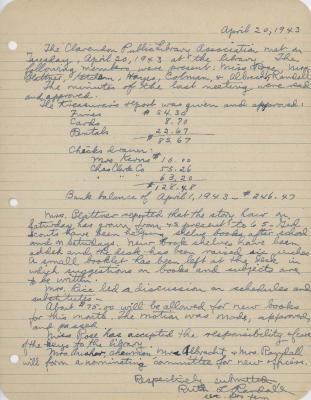 April 20, 1943
The Clarendon Public Library Association met on
Tuesday, April 20, 1943 at the library. The
following members were present: Miss Rose, Mrs.
Hayes, Colman, & Albrecht, Randall
The minutes of the last meeting were read
and approved.
The treasurer's report was given and approved:
Fines $ 54.30
Cards 8.70
Rentals 22.67
$ 85.67
Checks drawn:
Mrs. Kerns $ 10.00
Chas Clark Co 55.26
" " " 63.20
$128.48
Bank balance of April 1, 1943 - $246.47
Mrs. reported that the story hour on
Saturday has grown from 42 present to 65 - Girl
Scouts have been helping shelve books after school
and on Saturdays. New book shelves have been
added and the desk has been raised six inches
a small booklet has been left at the desk in
which suggestions on books and subjects are
to be written.
Mrs. Rice led a discussion on schedules and
substitutes.
About $75.00 will be allowed for new books
for this month. The motion was made, approved
and passed.
Miss Rose has accepted the responsibility of
of the keys to the library.
Mrs. chairman Mrs Albrecht & Mrs Randall
will form a nominating committee for new officers.
Respectively submitted
Ruth L. Randall
sec. pro tem